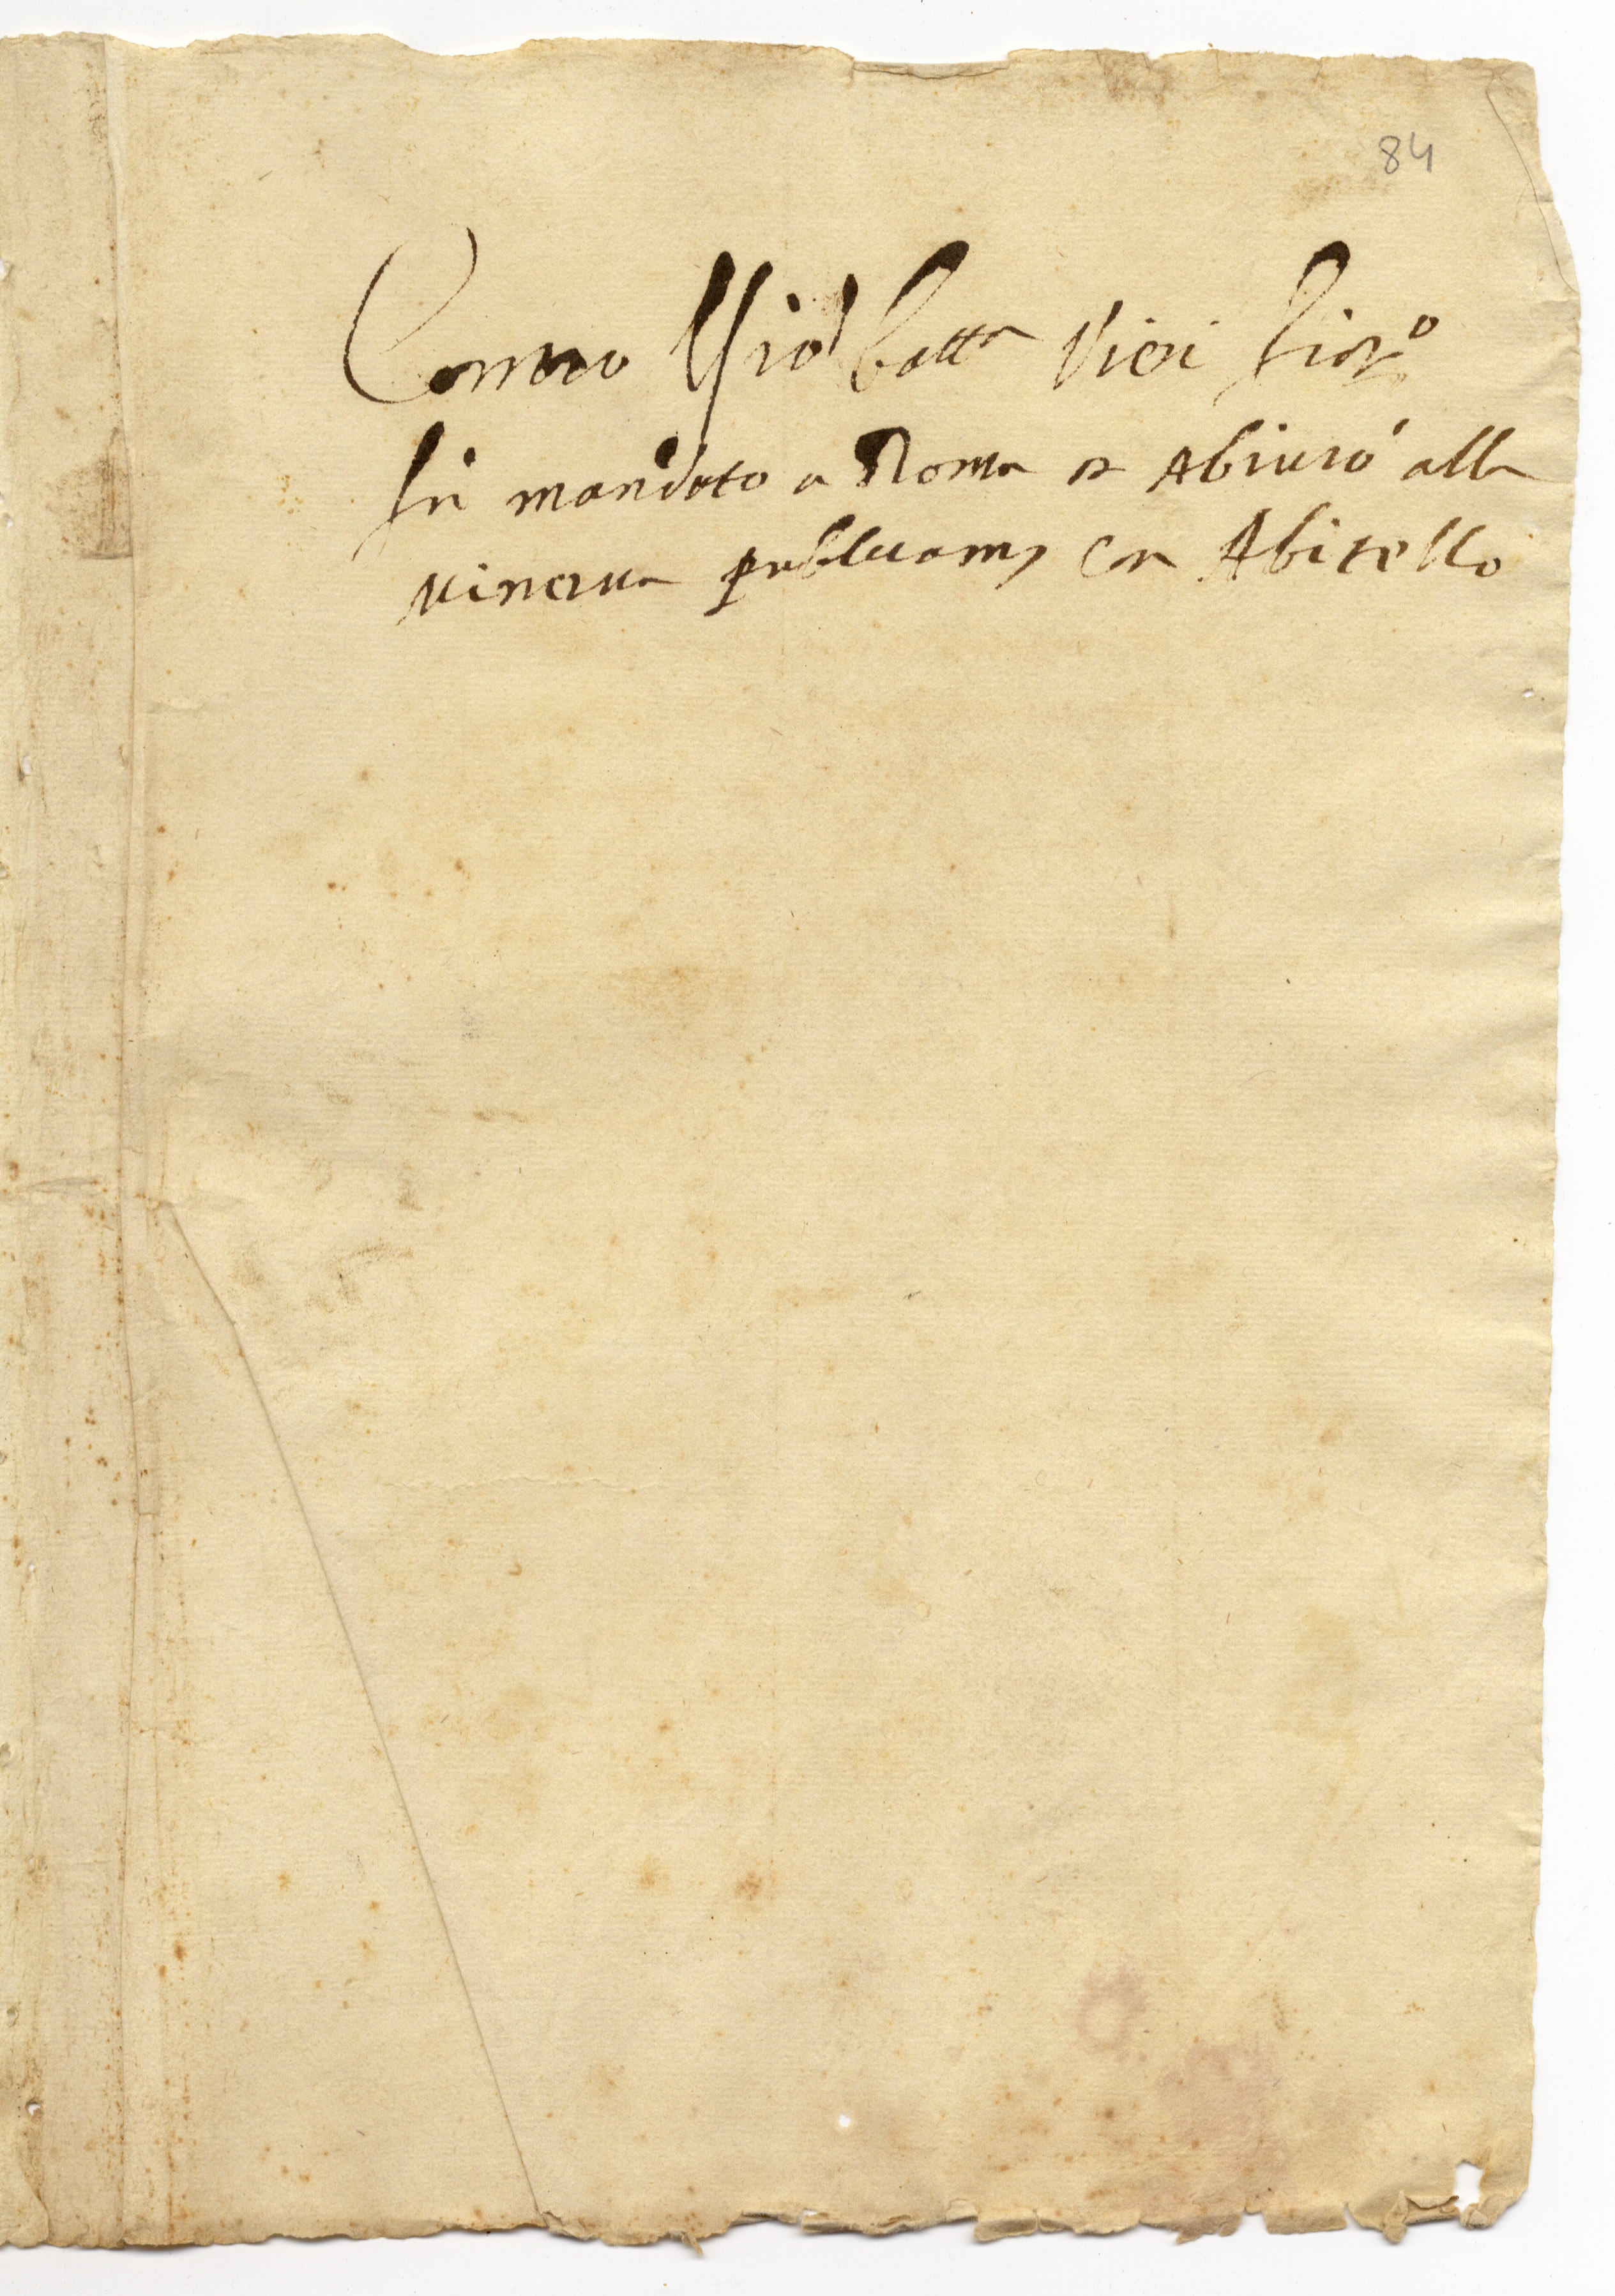 84
Contro Gio: batta Vieri fior.o
fù mandato a Roma et Abiurò alla
Minerva publicam, con Abitello